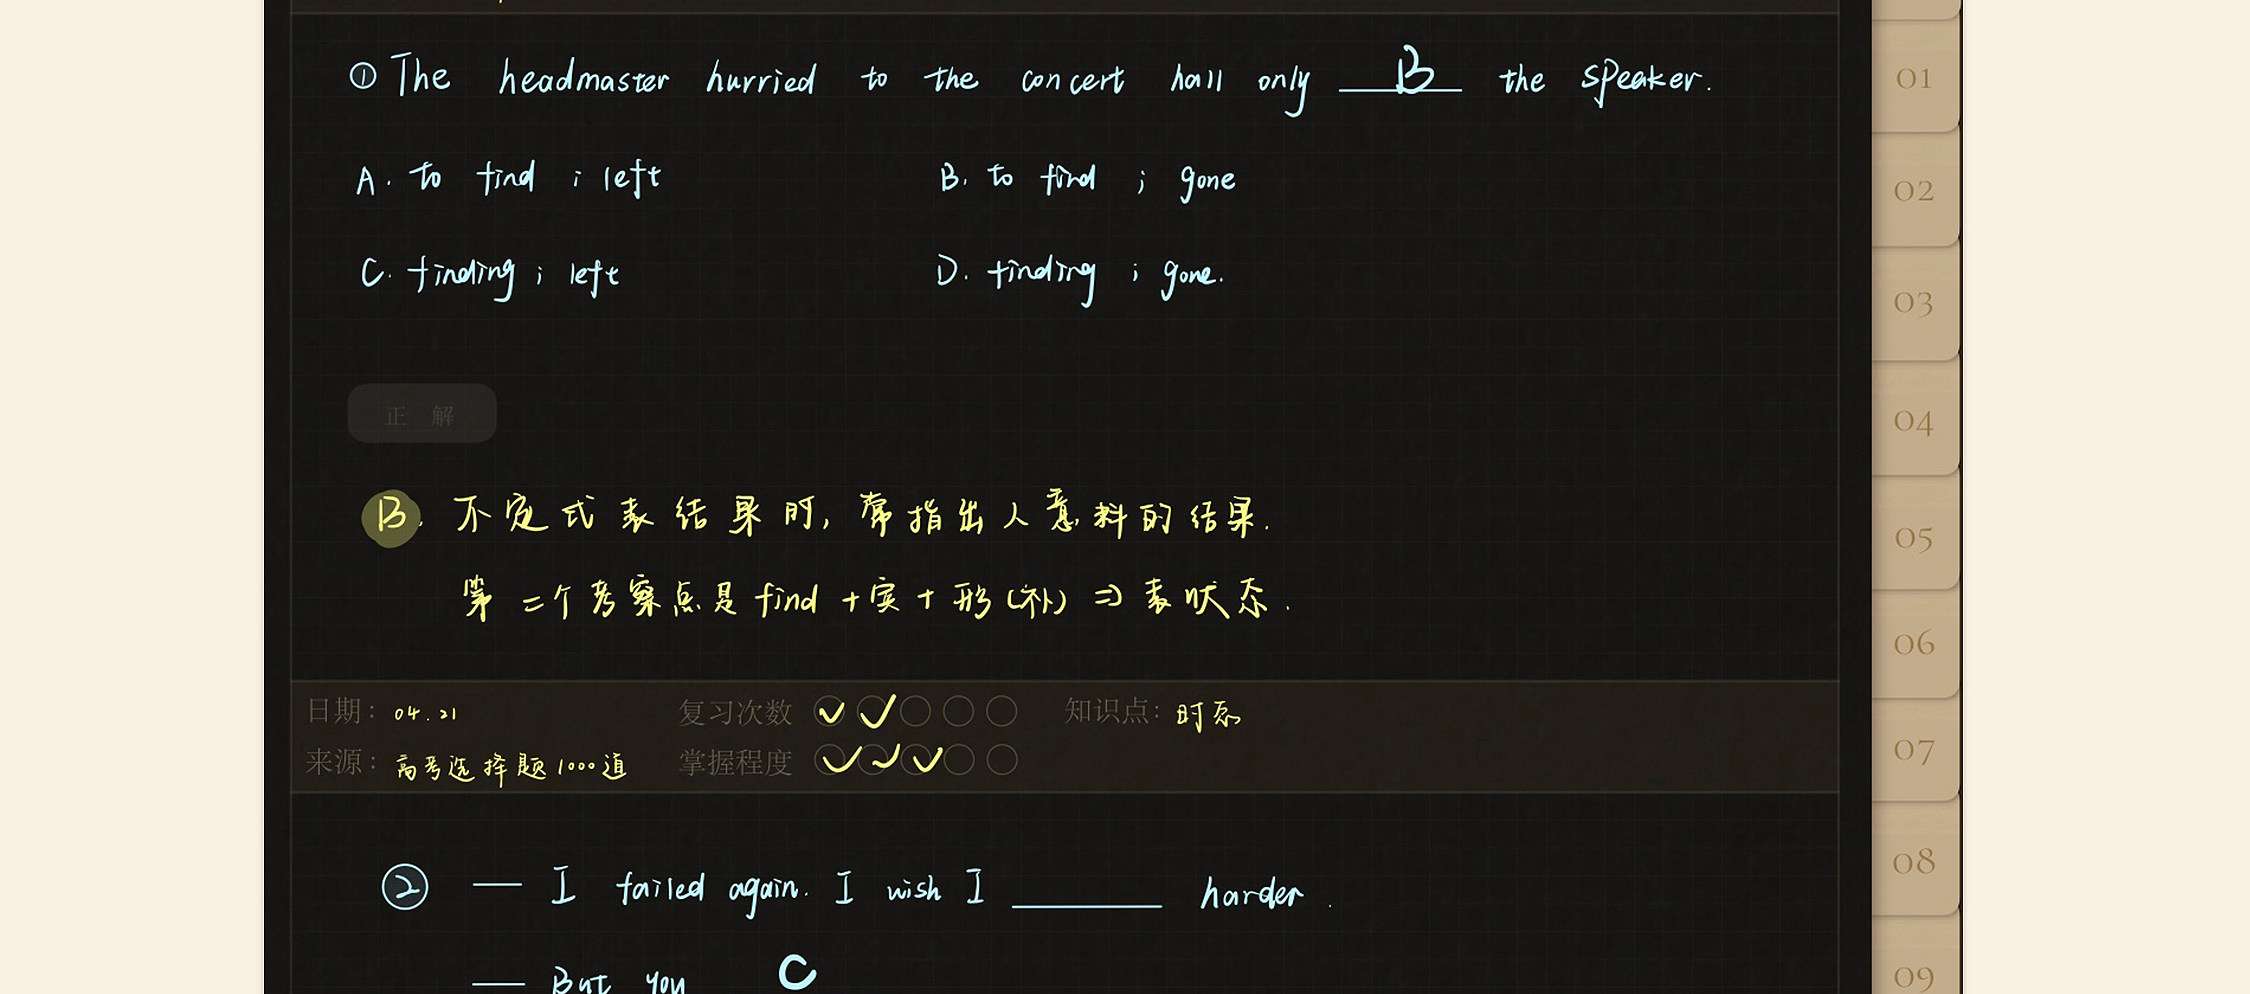 ① The headmaster hurried to the concert hall only B the speaker.
A. to find ; left
B. to find ; gone
C. finding ; left
D. finding ; gone.
正 解
B. 不定式表结果时, 常指出人意料的结果.
第二个考察点是 find + 宾 + 形 (补) ⇒ 表状态.
日期: 04.21
复习次数
知识点: 时态
来源: 高考选择题1000道
掌握程度
② — I failed again. I wish I ______ harder.
— But you C
01
02
03
04
05
06
07
08
09